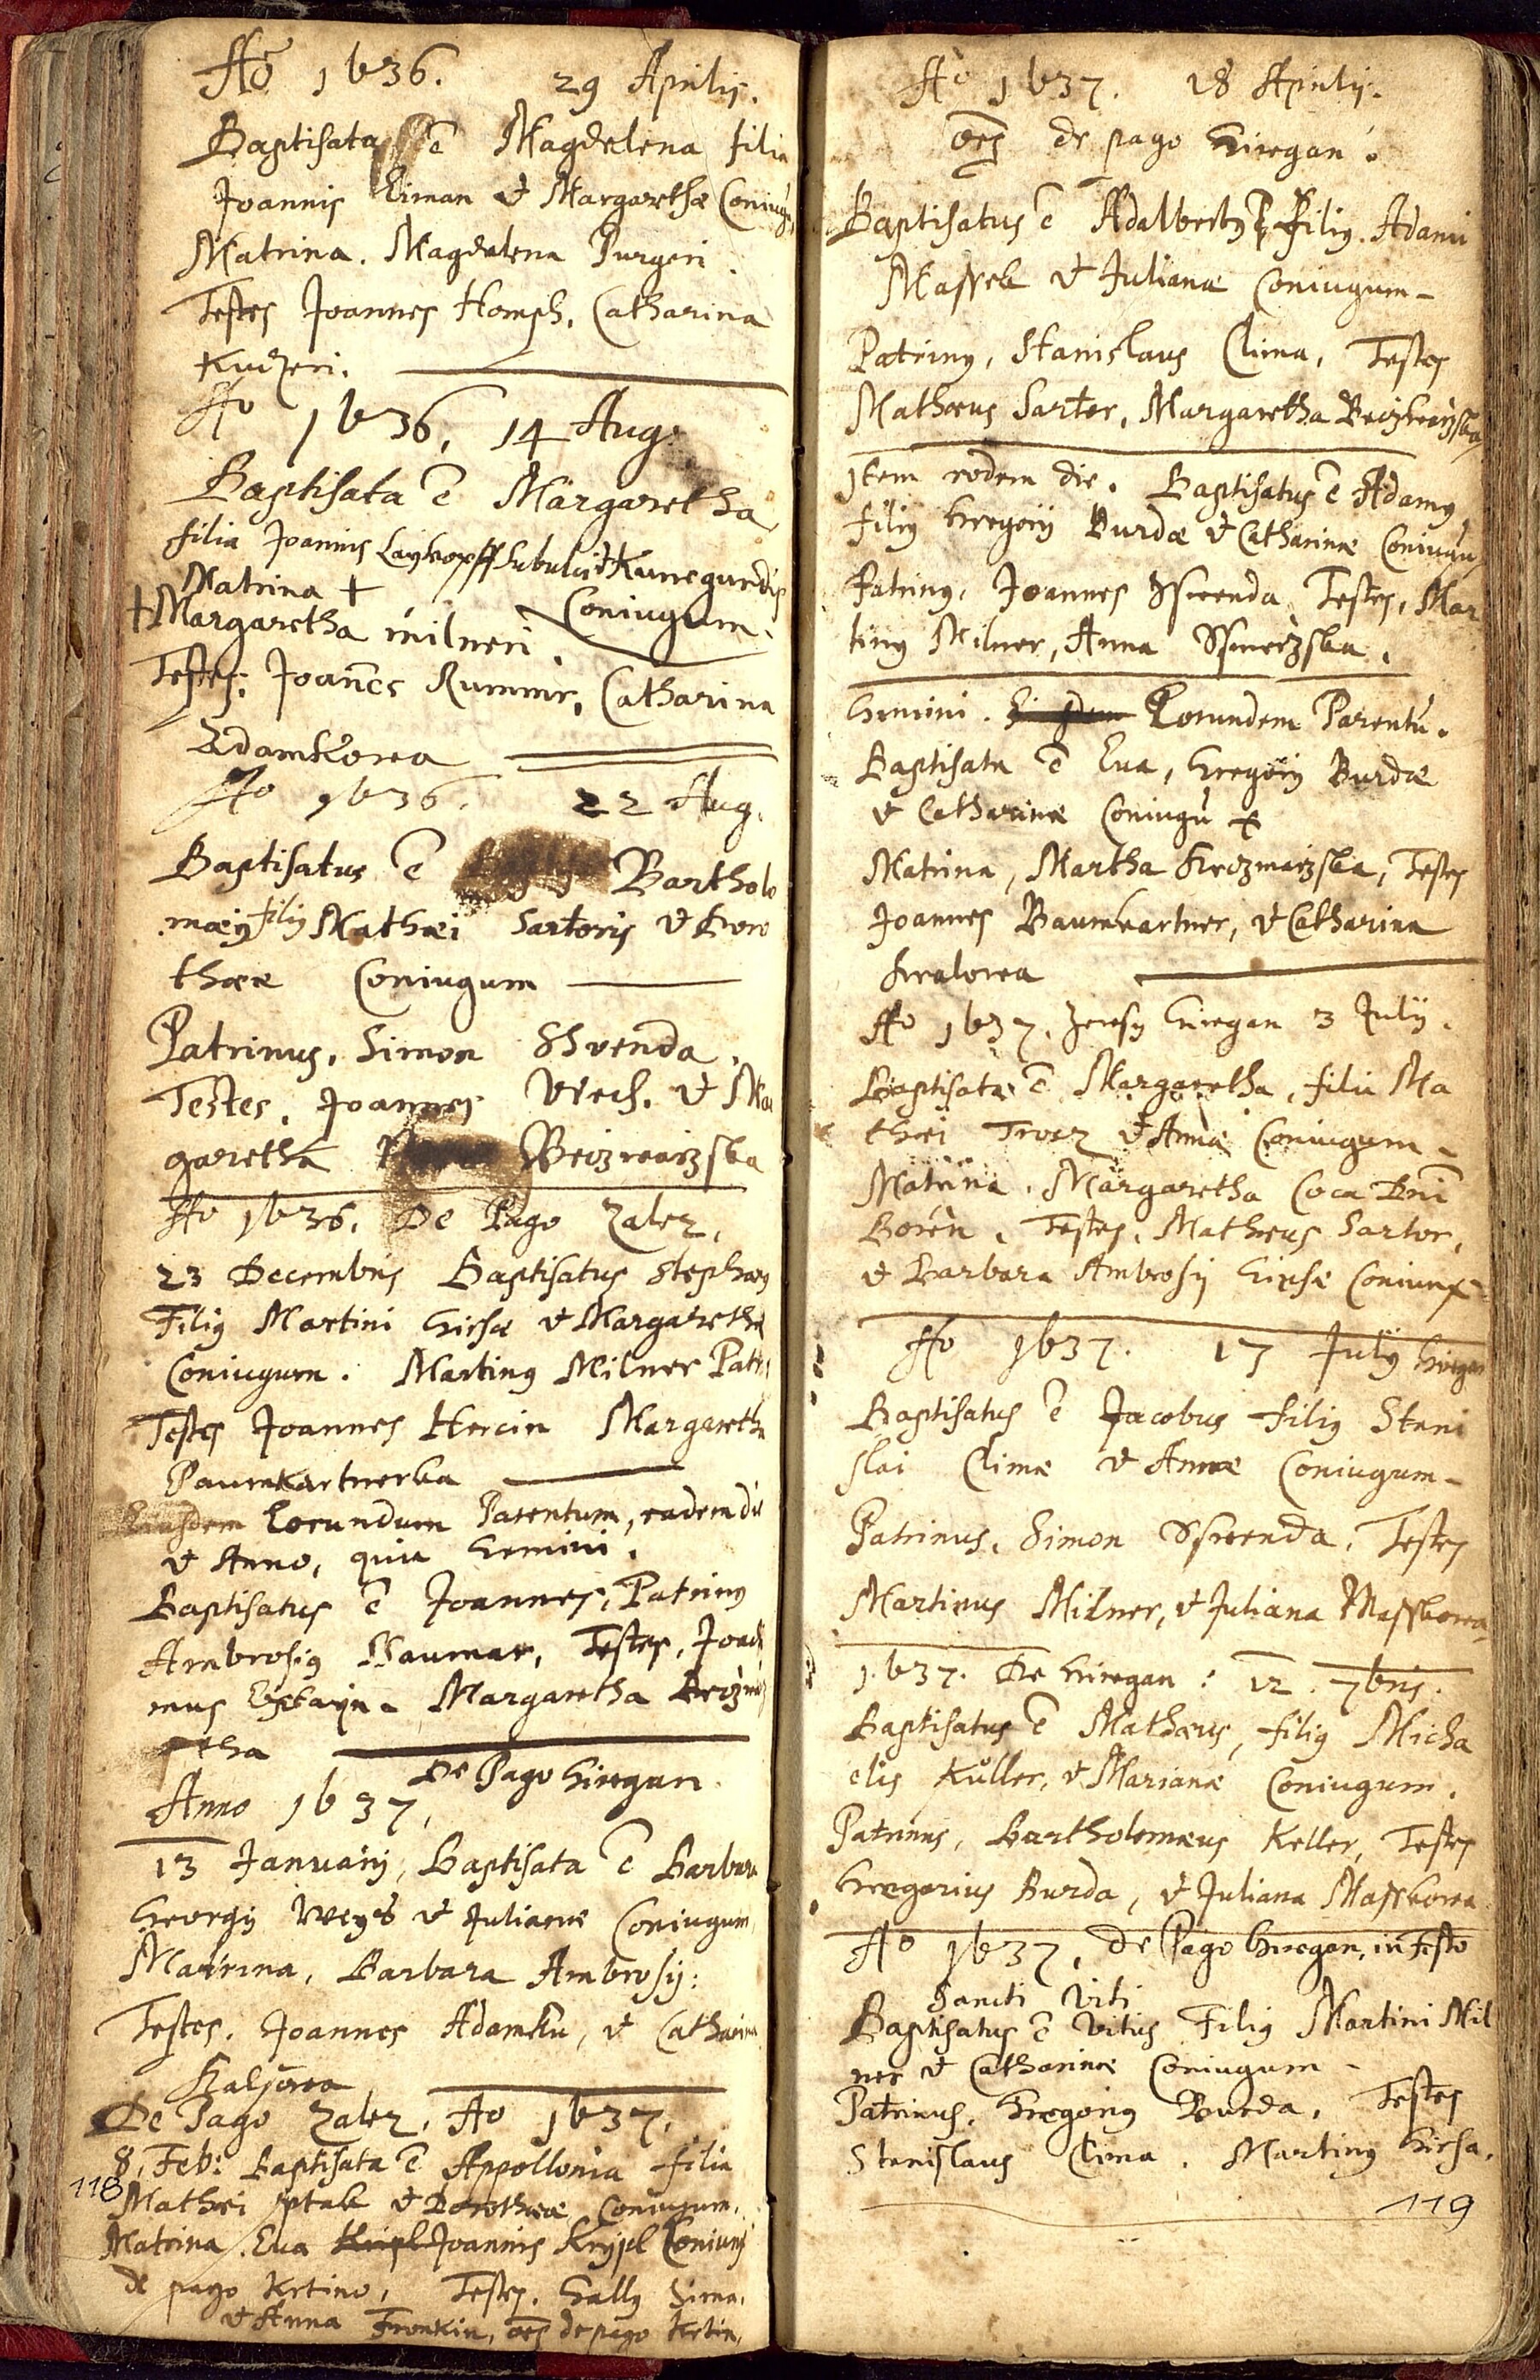 Ao 1636. 29 Aprilis.
Baptisata ē Magdelena filia
Joannis Eiman & Margarethæ Coniugū
Matrina. Magdalena Purgeri.
Testes Joannes Homph, Catharina
Kudzeri.
Ao 1636, 14 Aug:
Baptisata ē Margaretha
filia Joannis Laykopff Subulci & Kunegundis
Matrina + Coniugum.
+ Margaretha milneri.
Testes: Joanēs Rummir, Catharina
Adamkowa
Ao 1636. 22 Aug.
Baptisatus ē Bartholo
mæy filiy Mathæi Sartoris & Doro
thææ Coniugum
Patrinus, Simon Shvenda.
Testes. Joannes Vrech. & Mar
garetha
Ao 1636. De Pago Zalez.
23 Decembris Baptisatus Stephany
Filiy Martini Hirsæ & Margarethæ
Coniugum. Martiny Milner Patri
Testes Joannes Hercin Margaretha
Paumkartnerka
Eorundum Parentum, eadem die
& Anno, quia Gemini.
Baptisatus ē Joannes, Patriny
Ambrosiy Naumar, Testes, Joach
mus Margaretha
De Pago Hiregan.
Anno 1637,
13 Januarij, Baptisata ē Barbara
Georgij Weys & Julianæ Coniugum
Matrina, Barbara Ambrosij:
Testes. Joannes Adamku, & Catharina
Kaljowa
De Pago Zalez, Ao 1637,
8, Feb: Baptisata ē Appollonia filia
Mathæi Ptak & Dorotheæ Coniugum.
Matrina. Eua Joannis Krypl Coniunx
de pago Krtino, Testes. Gally Sima,
& Anna Fronkin, oēs de pago Krtin,
118
Ao 1637. 18 Aprilij.
oēs de pago Hiregan.
Baptisatus ē Adalberty filiy Adami
Massek & Julianæ Coniugum
Patriny, Stanislaus Clima, Testes
Mathæus Sartor, Margaretha
Item eodem die. Baptisatus ē Adamy
filiy Gregorij Burdæ & Catharinæ Coniugū
Patriny, Joannes Sswenda Testes, Mar
tiny Milner, Anna
Gemini. Eorundem Parentū.
Baptisata ē Eua, Gregorij Burdæ
& Catharinæ Coniugū +
Matrina, Martha Krczmarzska, Testes
Joannes Baumkartner, & Catharina
Kralowa
Ao 1637. Hiregan 3 Julij.
Baptisata ē Margaretha, filia Ma
thæi Trocz & Annæ Coniugum
Matrina. Margaretha Coca Dni
Boren. Testes. Mathæus Sartor,
& Barbara Ambrosij Hirsæ Coniunx
Ao 1637. 17 Julij Hiregan
Baptisatus ē Jacobus filiy Stani
slai Climæ & Annæ Coniugum
Patrinus. Simon Sswenda. Testes
Martinus Milner, & Juliana Masskowa
1637. De Hiregan: 12. 7bris.
Baptisatus ē Mathæus, filiy Micha
elis Kuller, & Marianæ Coniugum.
Patrinus, Bartholomæus Keller, Testes
Gregorius Burda, & Juliana Masskowa
Ao 1637, de Pago Hiregan, in Festo
Sancti Viti
Baptisatus ē Vitus Filiy Martini Mil
ner & Catharinæ Coniugum
Patrinus. Gregoriy Bourda, Testes
Stanislaus Clima. Martiny Hirsa.
119